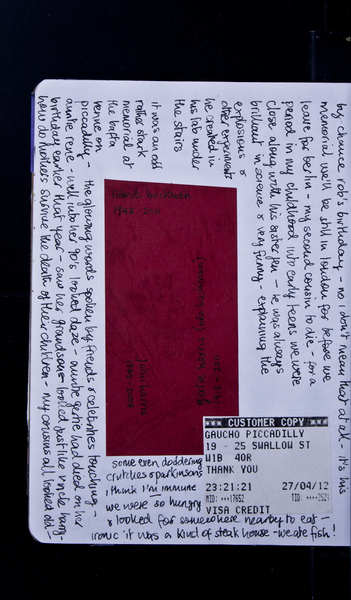 by chance rob's birthday - no - i don't mean that at all - it's his
memorial we'll be still in london for before we
leave for berlin - my second cousin to die - for a
period in my childhood into early teens we were
close along with his sister jen - he was always
brilliant in science & very funny - explaining the
explosions &
other experiments
he created in
his lab under
the stairs
it was an odd
rather stark
memorial at
the bafta
venue on
piccadilly - the glowing words spoken by friends & celebrities touching -
auntie rene - well into her 90's looked daze - auntie gertie had died on her
birthday earlier that year - saw her grandsons - looked just like uncle harry -
how do mothers survive the death of their children - my cousins all looked old -
some even doddering
crutches & parkinsons
i think i'm immune
we were so hungry
& looked for somewhere nearby to eat -
ironic it was a kind of steak house - we ate fish!
*** CUSTOMER COPY ***
GAUCHO PICCADILLY
19 - 25 SWALLOW ST
W1B 4DR
THANK YOU
23:21:21 27/04/12
MID: ****17652 TID: ****2521
VISA CREDIT